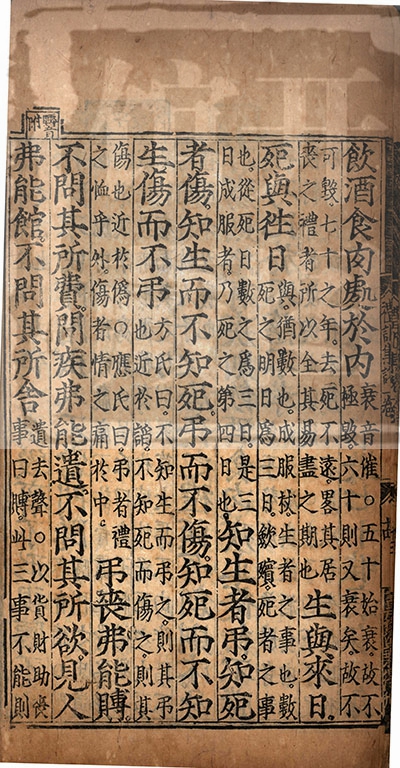 飲酒食肉處於内
衰音催○五十始衰故不
極毀六十則又衰矣故不
可毀七十之年去死不遠畧其居
喪之禮者所以全其易盡之期也
生與來日
死與徃日
與猶數也成服杖生者之事也數
死之明日爲三日斂殯死者之事
也從死日數之爲三日是三
日成服者乃死之第四日也
知生者弔知死
者傷知生而不知死弔而不傷知死而不知
生傷而不弔
方氏曰不知生而弔之則其弔
也近於謟不知死而傷之則其
傷也近於僞○應氏曰弔者禮
之恤乎外傷者情之痛於中
弔喪弗能賻
不問其所費問疾弗能遺不問其所欲見人
弗能館不問其所舍
遺去聲○以貨財助喪
事曰賻此三事不能則